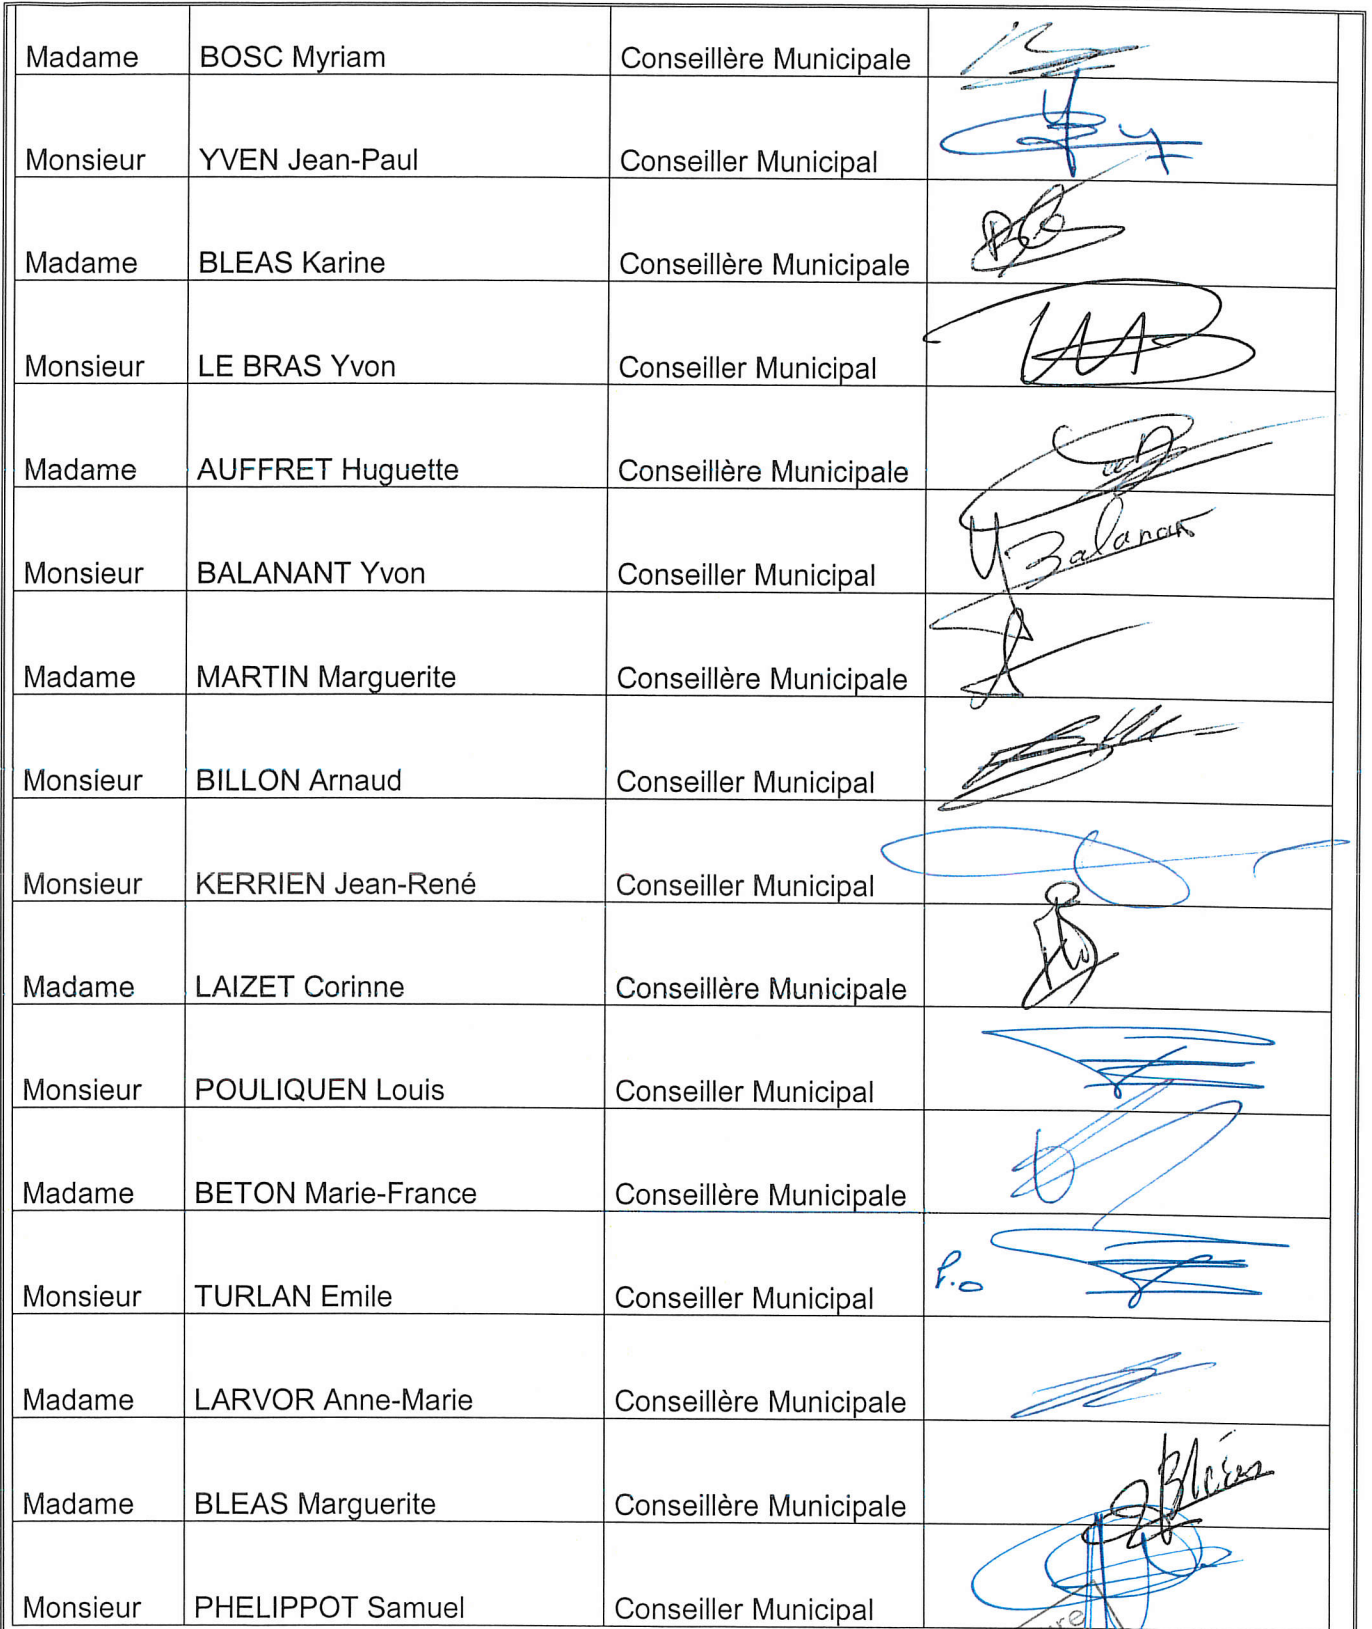 Madame BOSC Myriam Conseillère Municipale
Monsieur YVEN Jean-Paul Conseiller Municipal
Madame BLEAS Karine Conseillère Municipale
Monsieur LE BRAS Yvon Conseiller Municipal
Madame AUFFRET Huguette Conseillère Municipale
Monsieur BALANANT Yvon Conseiller Municipal Y Balanant
Madame MARTIN Marguerite Conseillère Municipale
Monsieur BILLON Arnaud Conseiller Municipal
Monsieur KERRIEN Jean-René Conseiller Municipal
Madame LAIZET Corinne Conseillère Municipale
Monsieur POULIQUEN Louis Conseiller Municipal
Madame BETON Marie-France Conseillère Municipale
Monsieur TURLAN Emile Conseiller Municipal P.o
Madame LARVOR Anne-Marie Conseillère Municipale
Madame BLEAS Marguerite Conseillère Municipale Bléas
Monsieur PHELIPPOT Samuel Conseiller Municipal